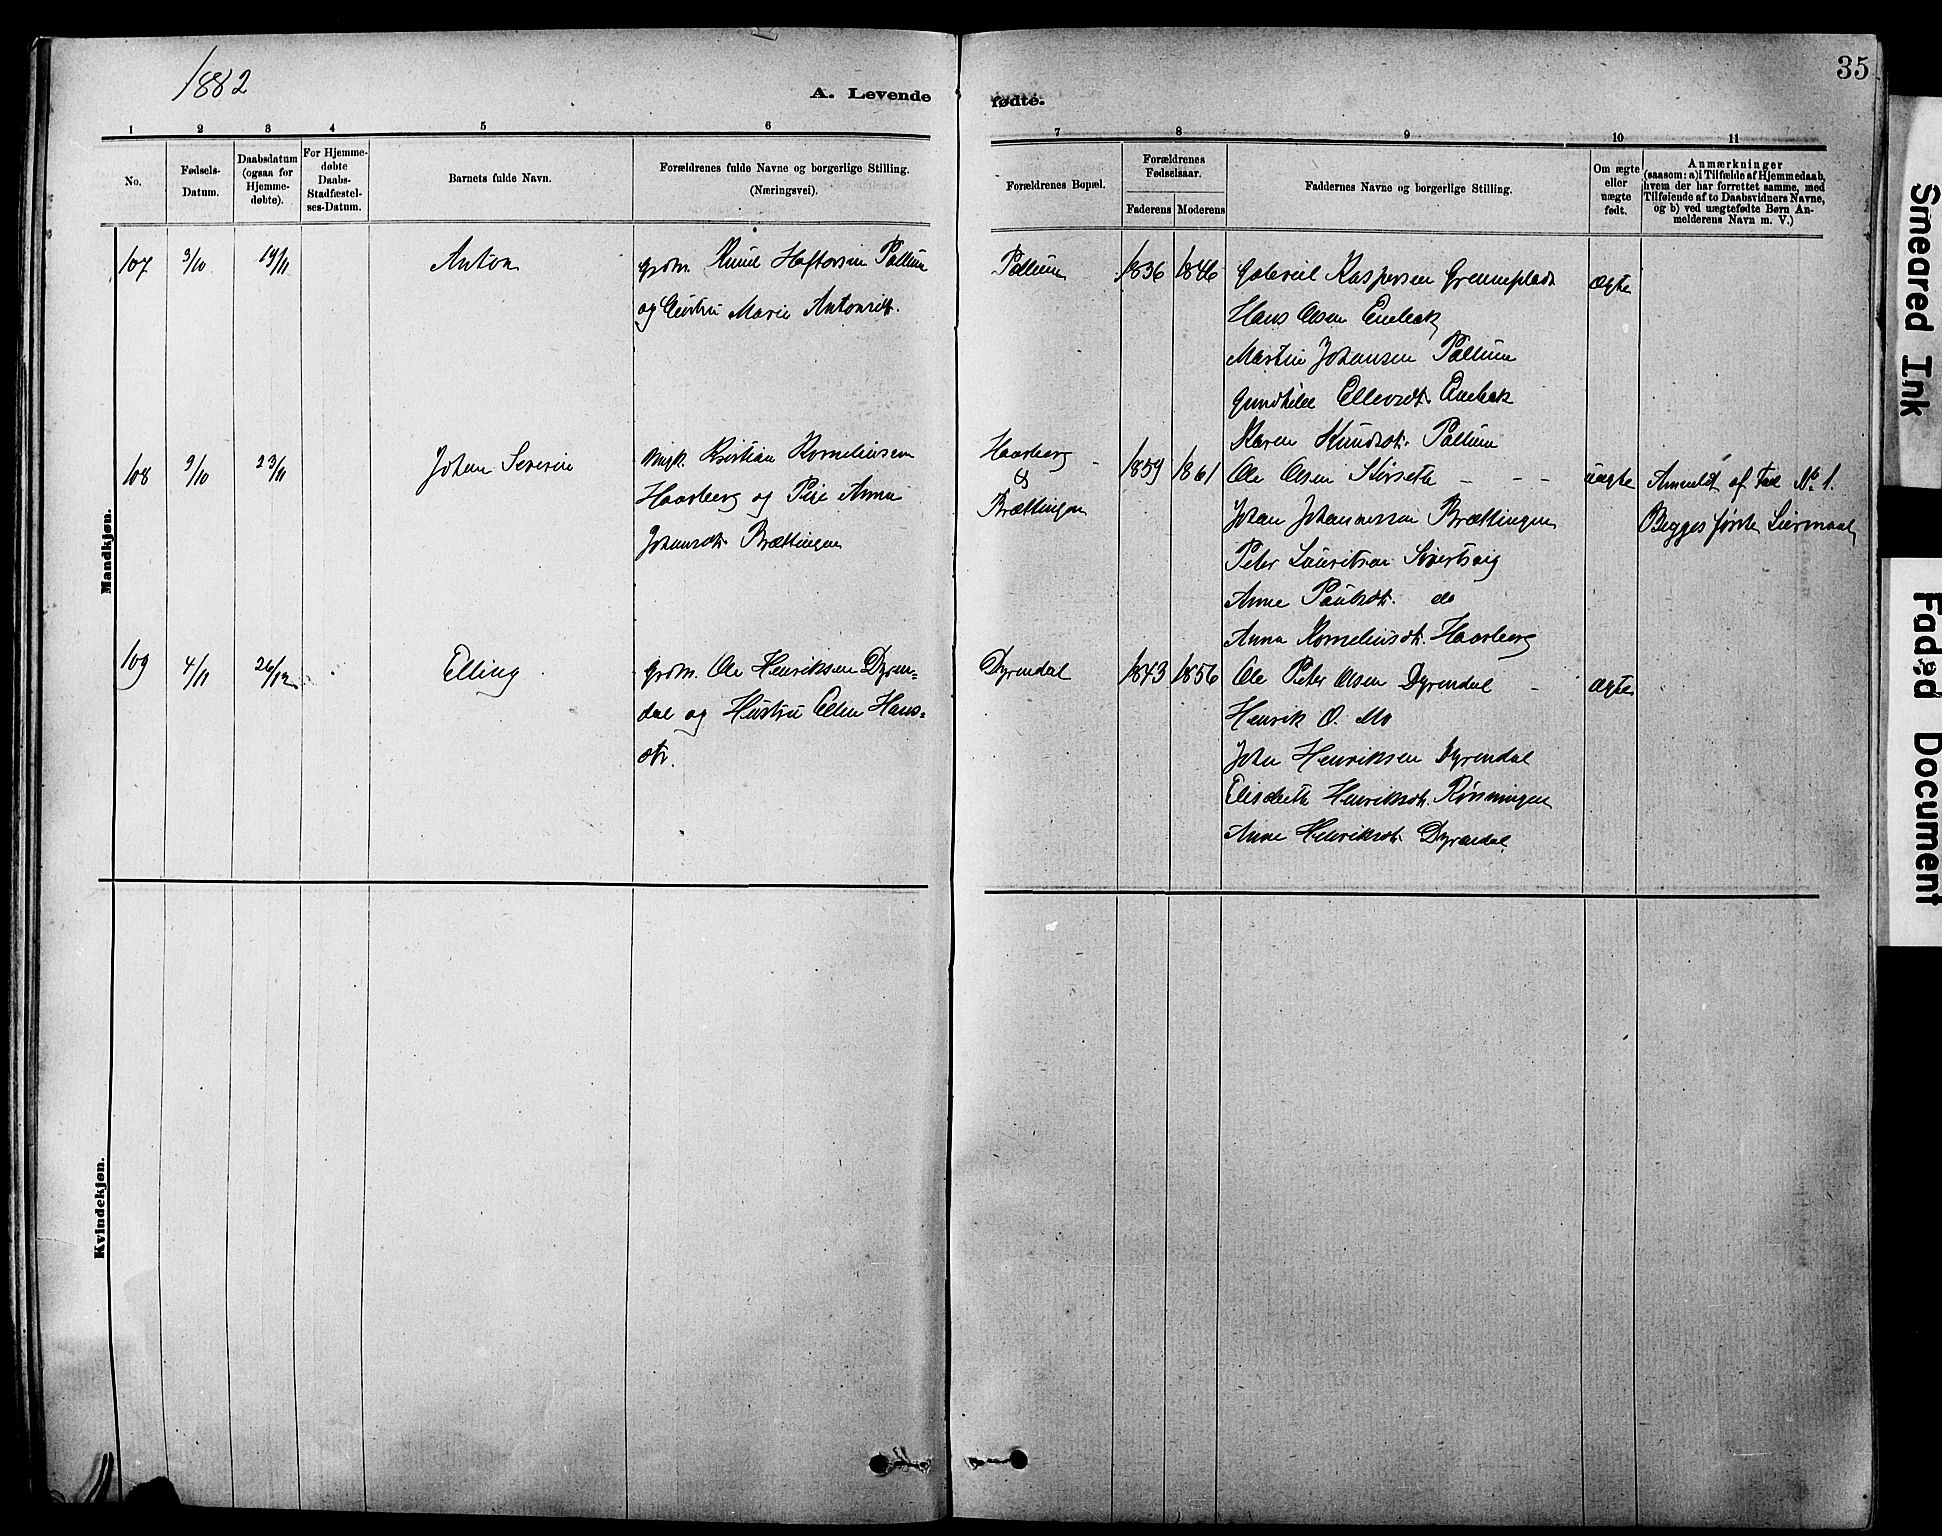 1882
A. Levende fødte.
35
1 2 3 4 5 6 7 8 9 10 11
No.
Fødsels-
Datum.
Daabsdatum
(ogsaa for
Hjemme-
døbte).
For Hjemme-
døbte
Daabs-
Stadfæstel-
ses-Datum.
Barnets fulde Navn.
Forældrenes fulde Navne og borgerlige Stilling.
(Næringsvei).
Forældrenes Bopæl.
Forældrenes
Fødselsaar.
Faderens Moderens
Faddernes Navne og borgerlige Stilling.
Om ægte
eller
uægte
født.
Anmærkninger
(saasom: a) i Tilfælde af Hjemmedaab,
hvem der har forrettet samme, med
Tilføiende af to Daabsvidners Navne,
og b) ved uægtefødte Børn An-
melderens Navn m. V.)
Mandkjøn.
107 3/10 19/11 Anton
Grdm. Knud Haftorsen Pallum
og Hustru Marie Antonsdt.
Pallum 1836 1846
Gabriel Kaspersen Grønneplads
Hans Olsen Enebak
Martin Johansen Pallum
Gundhild Ellevsdt. Enebak
Karen Knudsdt. Pallum
ægte
108 9/10 23/11 Johan Severin
Ungk. Kristian Korneliussen
Haarberg og Pige Anna
Johansdt. Brættingen
Haarberg
&
Brættingen
1859 1861
Ole Olsen Størseth - - -
Johan Johannessen Brættingen
Peter Lauritsen Sivertsvig
Anne Paulsdt. do
Anna Korneliusdt. Haarberg
uægte
Anmeldt af Fad. No 1.
Begges første Leiermaal
109 4/11 26/12 Elling
Grdm. Ole Henriksen Dyren=
dal og Hustru Ellen Hans=
dtr.
Dyrendal 1843 1856
Ole Peter Olsen Dyrendal -
Henrik O. Mo
John Henriksen Dyrendal
Elisabeth Henriksdt. Rønningen
Anne Henriksdt. Dyrendal
ægte
Kvindekjøn.
Smeared Ink
Faded Document